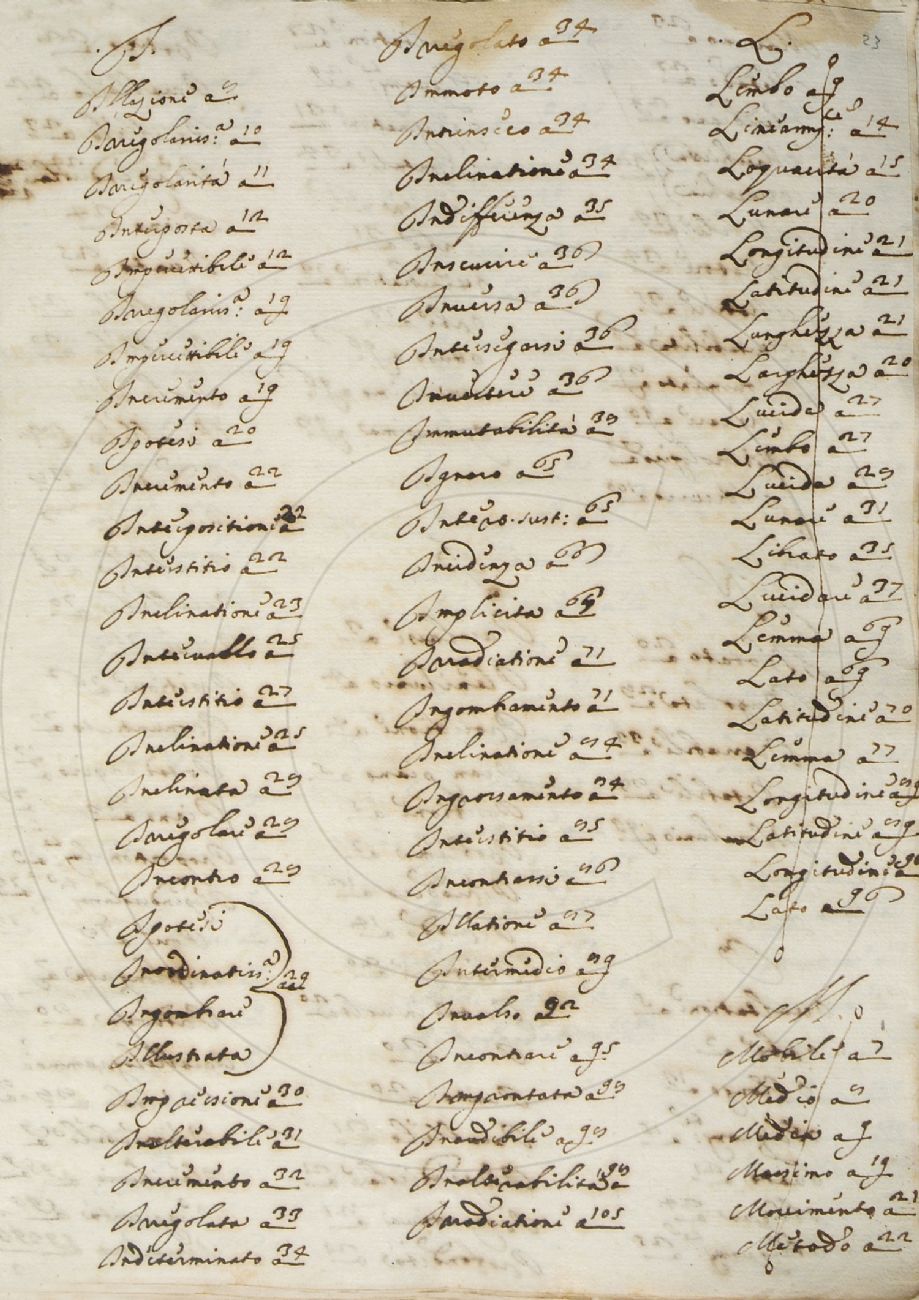 I.
Illazione a 9
Irregolariss.a a 10
Irregolarità a 11
Interposta a 12
Impercetibile a 12
Irregolariss.a a 19
Impercetibile a 19
Incremento a 19
Ipotesi a 20
Incremento a 22
Interpositione a 22
Interstitio a 22
Inclinatione a 23
Intervallo a 25
Interstitio a 27
Inclinatione a 25
Inclinata a 29
Irregolare a 29
Incontro a 29
Ipotesi
Inordinatiss.a a 29
Ingombrare
Illustrata
Impressione a 30
Inalterabile a 31
Incremento a 32
Irregolata a 33
Indeterminato a 34
Irregolato a 34
Immoto a 34
Intrinseco a 34
Inclinatione a 34
Indifferenza a 35
Inserire a 36
Inversa a 36
Intersegarsi a 36
Invertere a 36
Immutabilità a 39
Ignoro a 65
Incidenza a 66
Implicita a 69
Irradiatione a 71
Ingombramento a 71
Inclinatione a 94
Interstitio a 95
Incontrarsi a 96
Illatione a 97
Intermedio a 99
Invalso a 92
Incontrare a 95
Improntata a 99
Inaudibile a 99
Inalterabilità a 99
Irradiatione a 105
L.
23
Lembo a 9
a 14
Loquacità a 15
Lunare a 20
Longitudine a 21
Latitudine a 21
Lunghezza a 21
Larghezza a 20
Lucida a 27
Lembo a 27
Lucida a 29
Lunare a 31
Librato a 35
Lucidare a 37
Lemma a 69
Lato a 69
Latitudine a 70
Lemma a 77
Longitudine a 89
Latitudine a 89
Longitudine a 90
Lato a 96
M.
Mobile a 7
Medio a 9
Media a 9
Massimo a 19
Movimento a 21
Metodo a 22